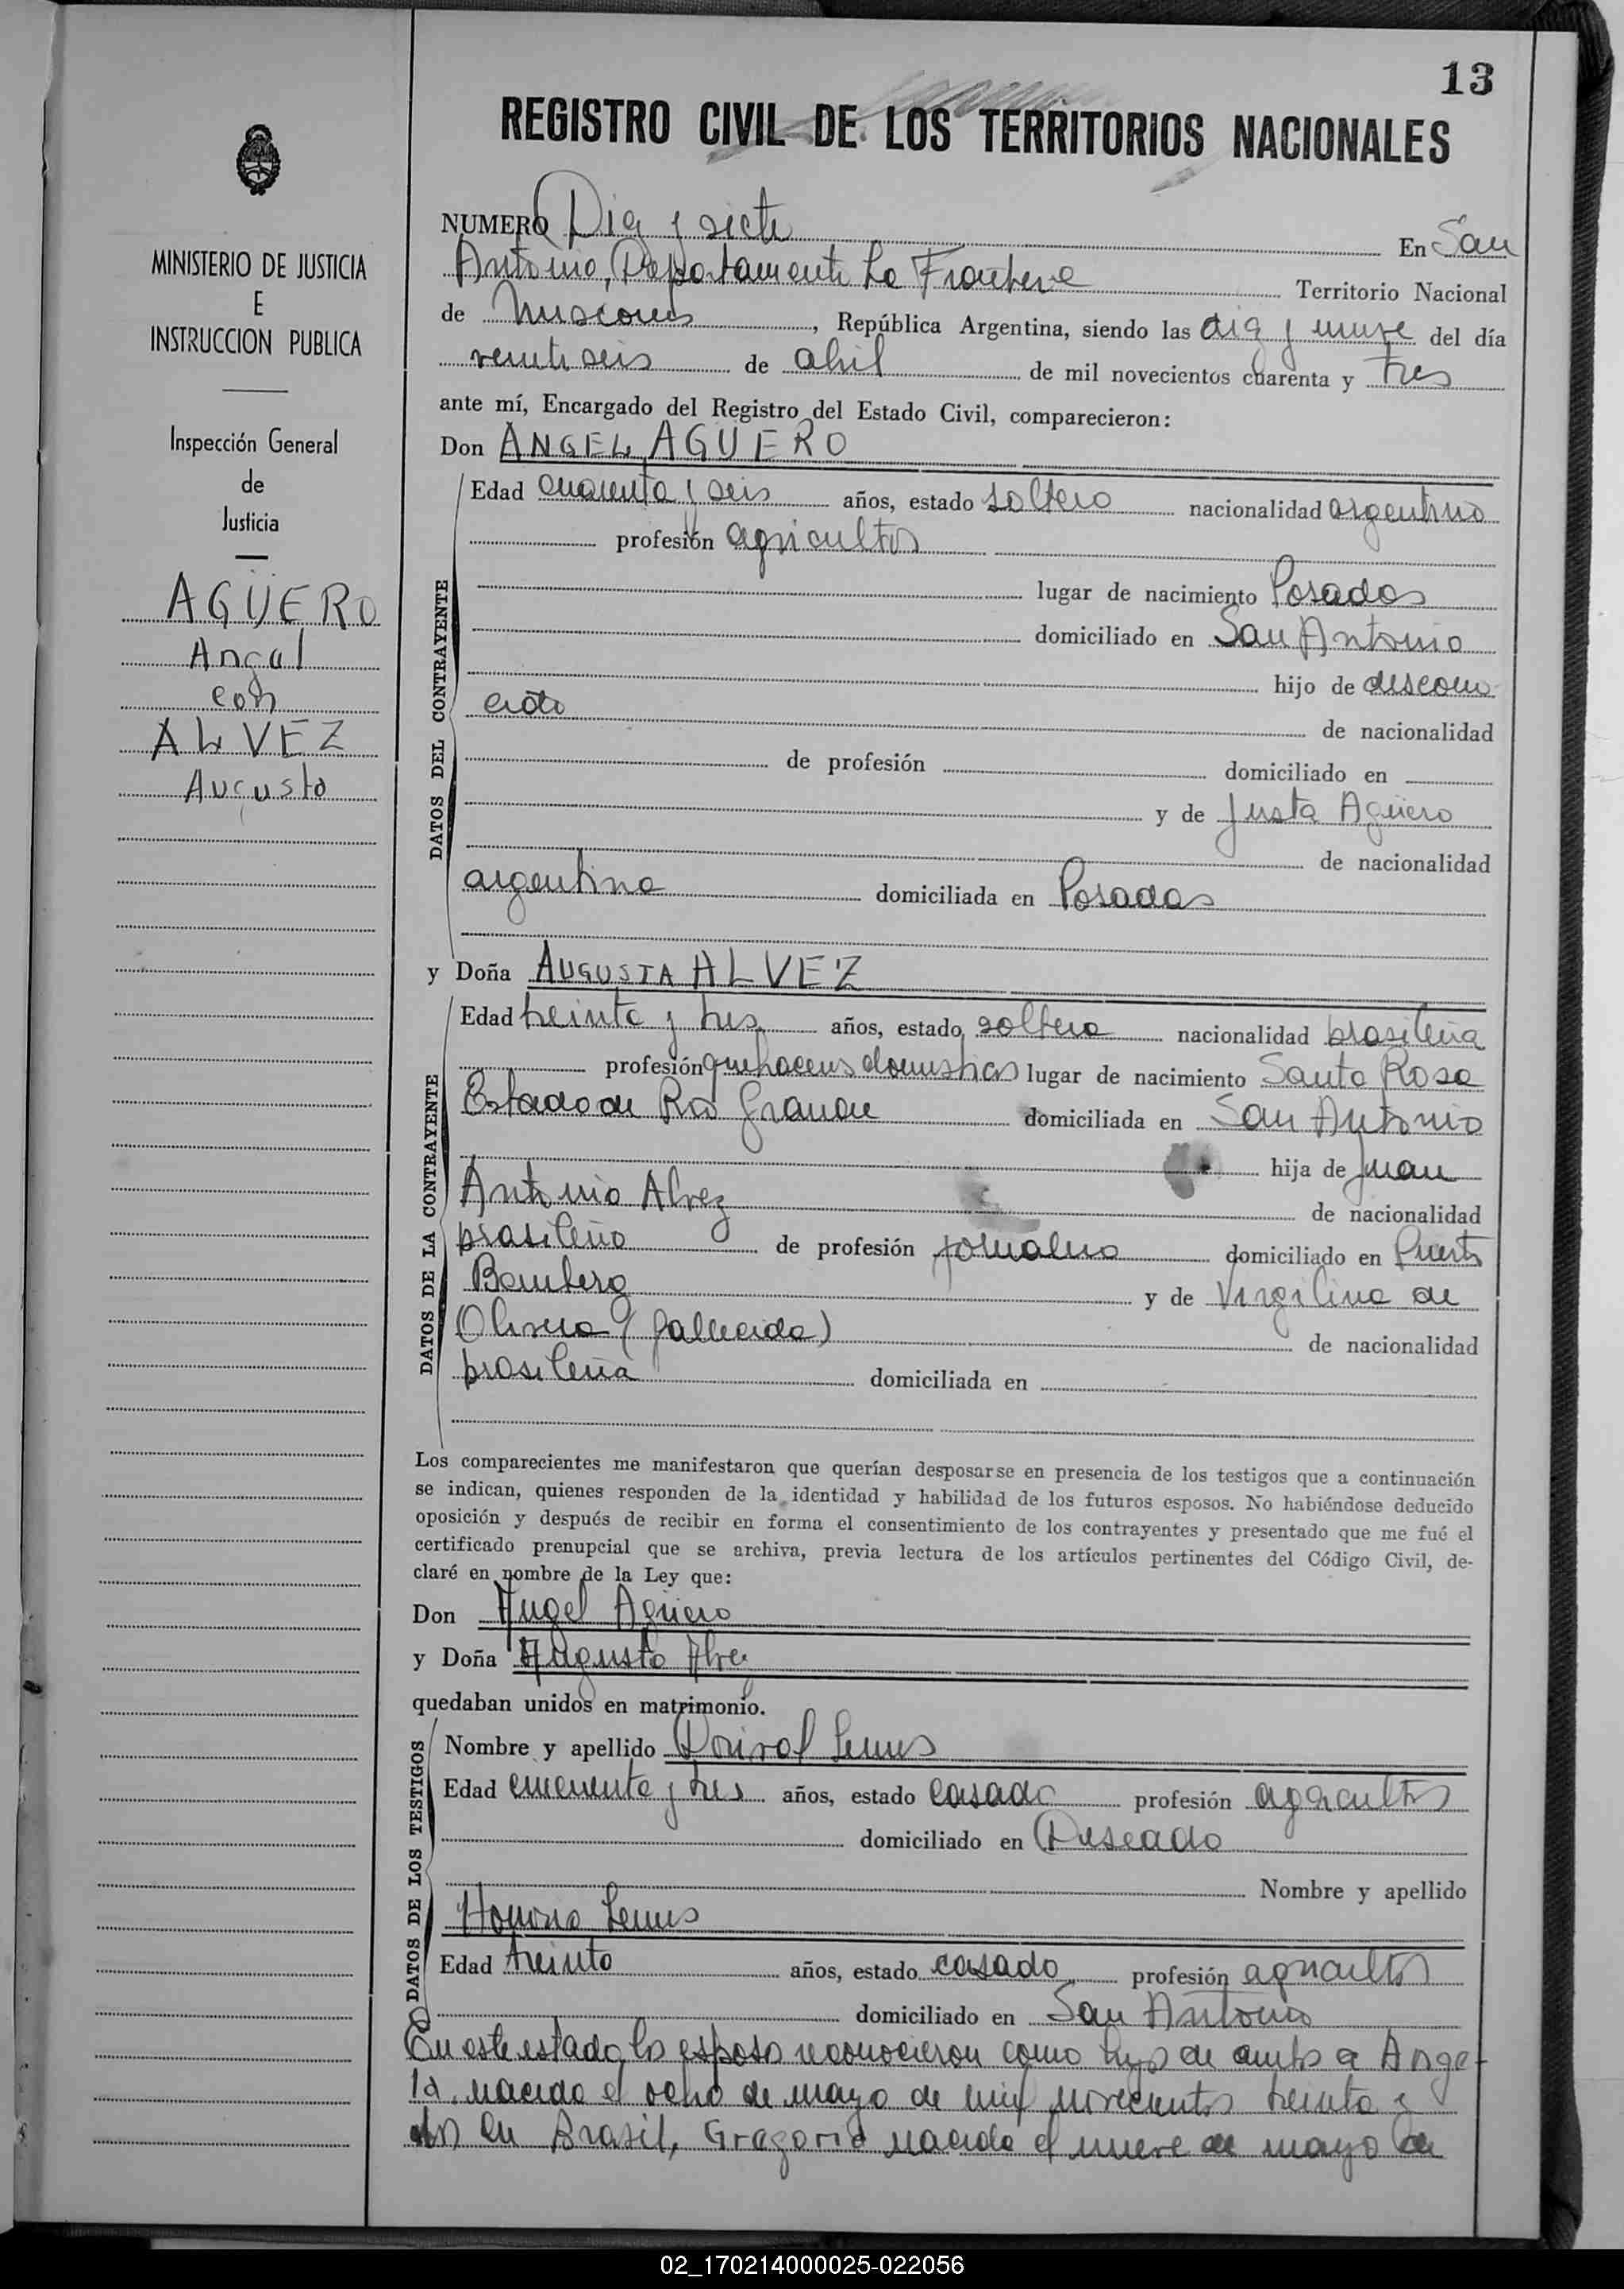 13
REGISTRO CIVIL DE LOS TERRITORIOS NACIONALES
MINISTERIO DE JUSTICIA
E
INSTRUCCION PUBLICA
Inspección General
de
Justicia
AGÜERO
Angel
con
ALVEZ
Augusta
NUMERO Diez y siete En San
Antonio, Departamento La Frontera Territorio Nacional
de Misiones, República Argentina, siendo las diez y nueve del día
veintiseis de abril de mil novecientos cuarenta y tres
ante mí, Encargado del Registro del Estado Civil, comparecieron:
Don ANGEL AGÜERO
DATOS DEL CONTRAYENTE
Edad cuarenta y seis años, estado soltero nacionalidad argentino
profesión agricultor
lugar de nacimiento Posadas
domiciliado en San Antonio
hijo de descono-
cido
de nacionalidad
de profesión domiciliado en
y de Justa Agüero
de nacionalidad
argentina domiciliada en Posadas
y Doña AUGUSTA ALVEZ
DATOS DE LA CONTRAYENTE
Edad treinta y tres años, estado soltera nacionalidad brasileña
profesión quehaceres domesticos lugar de nacimiento Santa Rosa
Estado de Rio Grande domiciliada en San Antonio
hija de Juan
Antonio Alvez de nacionalidad
brasileño de profesión jornalero domiciliado en Puerto
Bemberg y de Virgilina de
Olivera (fallecida) de nacionalidad
brasileña domiciliada en
Los comparecientes me manifestaron que querían desposarse en presencia de los testigos que a continuación
se indican, quienes responden de la identidad y habilidad de los futuros esposos. No habiéndose deducido
oposición y después de recibir en forma el consentimiento de los contrayentes y presentado que me fué el
certificado prenupcial que se archiva, previa lectura de los artículos pertinentes del Código Civil, de-
claré en nombre de la Ley que:
Don Angel Agüero
y Doña Augusta Alvez
quedaban unidos en matrimonio.
DATOS DE LOS TESTIGOS
Nombre y apellido Lemes
Edad y tres años, estado casado profesión agricultor
domiciliado en Deseado
Nombre y apellido
Lemes
Edad treinta años, estado casado profesión agricultor
domiciliado en San Antonio
En este estado los esposos reconocieron como hijos de ambos a Ange-
la, nacida el ocho de mayo de mil novecientos treinta y
dos en Brasil, Gregorio nacido el nueve de mayo de
02_170214000025-022056